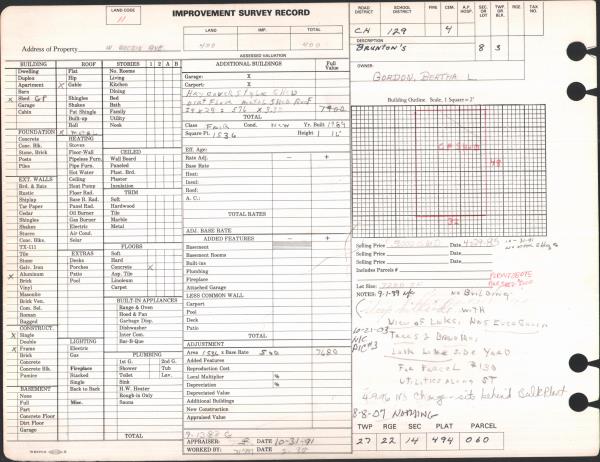 LAND CODE
11
IMPROVEMENT SURVEY RECORD
LAND IMP. TOTAL
400 400
ASSESSED VALUATION
Address of Property W. AVE
ROAD DISTRICT SCHOOL DISTRICT FIRE CEM. A.P. HOSP. SEC. OR LOT TWP. OR BLK. RGE. TAX NO.
CH 129 4
DESCRIPTION
BRUNTON'S 8 3
OWNER:
GORDON, BERTHA L.
BUILDING ROOF STORIES 1 2 A B
Dwelling Flat No. Rooms
Duplex Hip Living
Apartment X Gable Kitchen
Barn Mansard Dining
X Shed G.P. Shingles Bed
Garage Shakes Bath
Cabin Pat Shingle Family
Built-up Utility
Roll Nook
FOUNDATION X METAL
Concrete HEATING
Conc. Blk. Stoves CEILED
Stone, Brick Floor-Wall Wall Board
Posts Pipeless Furn. Paneled
Piles Pipe Furn. Plast. Brd.
Hot Water Plaster
EXT. WALLS Ceiling Insulation
Brd. & Bats Heat Pump
Rustic Floor Rad. TRIM
Shiplap Base B. Rad. Soft
Tar Paper Panel Rad. Hardwood
Cedar Oil Burner Tile
Shingles Gas Burner Marble
Shakes Electric Metal
Stucco Air Cond.
Conc. Blks. Solar FLOORS
TX-111 Soft
Tile EXTRAS Hard
Stone Decks Concrete X
Galv. Iron Porches Asp. Tile
X Aluminum Patio Linoleum
Brick Pool Carpet
Vinyl
Masonite BUILT-IN APPLIANCES
Brick Ven. Range & Oven
Con. Sel. Hood & Fan
Roman Garbage Disp.
Rugged Dishwasher
CONSTRUCT. Inter Com.
X Single LIGHTING Bar-B-Que
Double Electric
X Frame PLUMBING
Brick Gas 1st G. 2nd G.
Concrete Fireplace Shower Tub
Concrete Blk. Stacked Toilet Lav.
Piling Single Sink
BASEMENT Back to Back H.W. Heater
None Rough-in Only
Full Misc. Sauna
Part
Concrete Floor
Dirt Floor
Garage TOTAL
ADDITIONAL BUILDINGS Full Value
Garage: X
Carport: X
SHED
DIRT FLOOR METAL SHED ROOF
7400
Class FAIR Cond. NEW Yr. Built 1989
Square Ft. 1536 Height 16'
Eff. Age:
Rate Adj. - +
Base Rate
Heat:
Insul:
Roof:
A. C.:
TOTAL RATES
ADJ. BASE RATE
ADDED FEATURES - +
Basement
Basement Rooms
Built-ins
Plumbing
Fireplace
Attached Garage
LESS COMMON WALL
Carport
Pool
Patio
TOTAL
ADJUSTMENT
Area 1536 x Base Rate 500 7680
Added Features
Reproduction Cost
Local Multiplier %
Depreciation %
Depreciated Value
Additional Buildings
New Construction
Appraised Value
APPRAISER: DATE 10-31-91
WORKED BY: DATE
Building Outline, Scale, 1 Square = 2'
G.P. Shed
48
32
Selling Price Date 4-29-85
Selling Price Date
Selling Price Date
Includes Parcels #
Lot Size: 7200 SF
NOTES: 9-1-99 N/C NO BUILDING
WITH
VIEW OF LAKE, HAS
10-21-03 TREES & BRUSH,
N/C LOOK LIKE SIDE YARD
PIC#3 FOR PARCEL
UTILITIES ALONG ST
No Change
8-8-07 NOTHING
TWP RGE SEC PLAT PARCEL
27 22 14 494 060